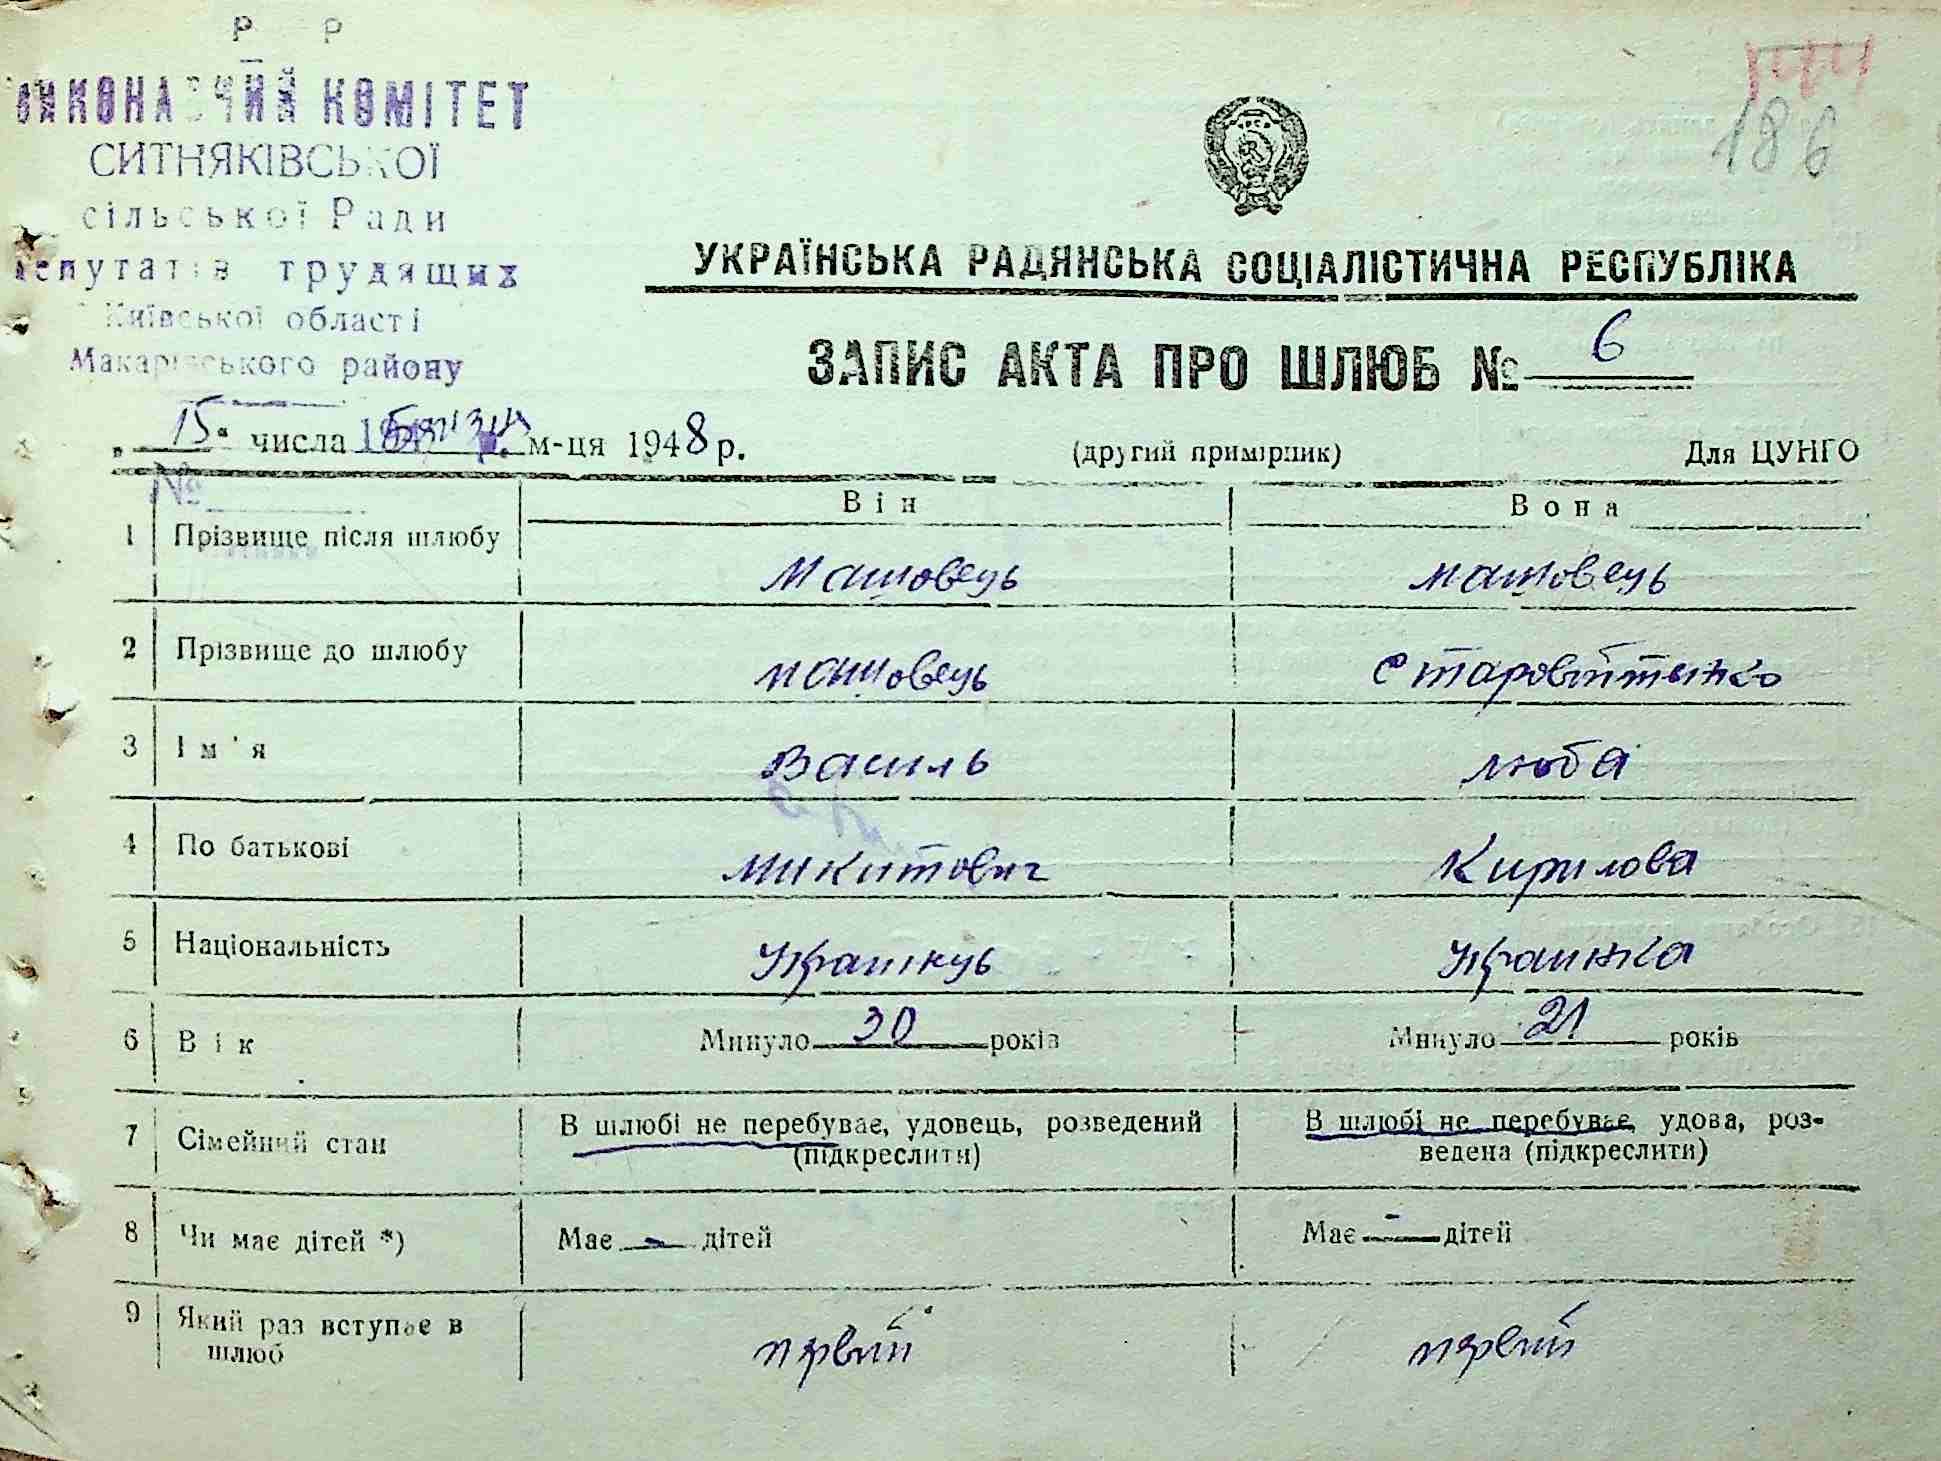 Р Р
ВИКОНАВЧИЙ КОМІТЕТ
СИТНЯКІВСЬКОЇ
сільської Ради
депутатів трудящих
Київської області
Макарівського району
186
УКРАЇНСЬКА РАДЯНСЬКА СОЦІАЛІСТИЧНА РЕСПУБЛІКА
ЗАПИС АКТА ПРО ШЛЮБ № 6
„ 15 " числа м-ця 1948 р. (другий примірник) Для ЦУНГО
№
Він Вона
1 Прізвище після шлюбу Машовець Машовець
2 Прізвище до шлюбу Машовець Старовітенко
3 Ім'я Василь Люба
4 По батькові Микитович Кирилова
5 Національність Українець Українка
6 Вік Минуло 30 років Минуло 21 років
7 Сімейний стан В шлюбі не перебуває, удовець, розведений (підкреслити) В шлюбі не перебуває, удова, роз-
ведена (підкреслити)
8 Чи має дітей *) Має - дітей Має - дітей
9 Який раз вступає в
шлюб первий первий